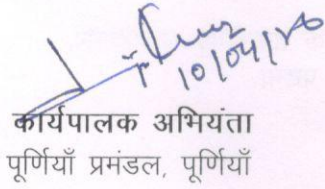 10/04/26
कार्यपालक अभियंता
पूर्णियाँ प्रमंडल, पूर्णियाँ